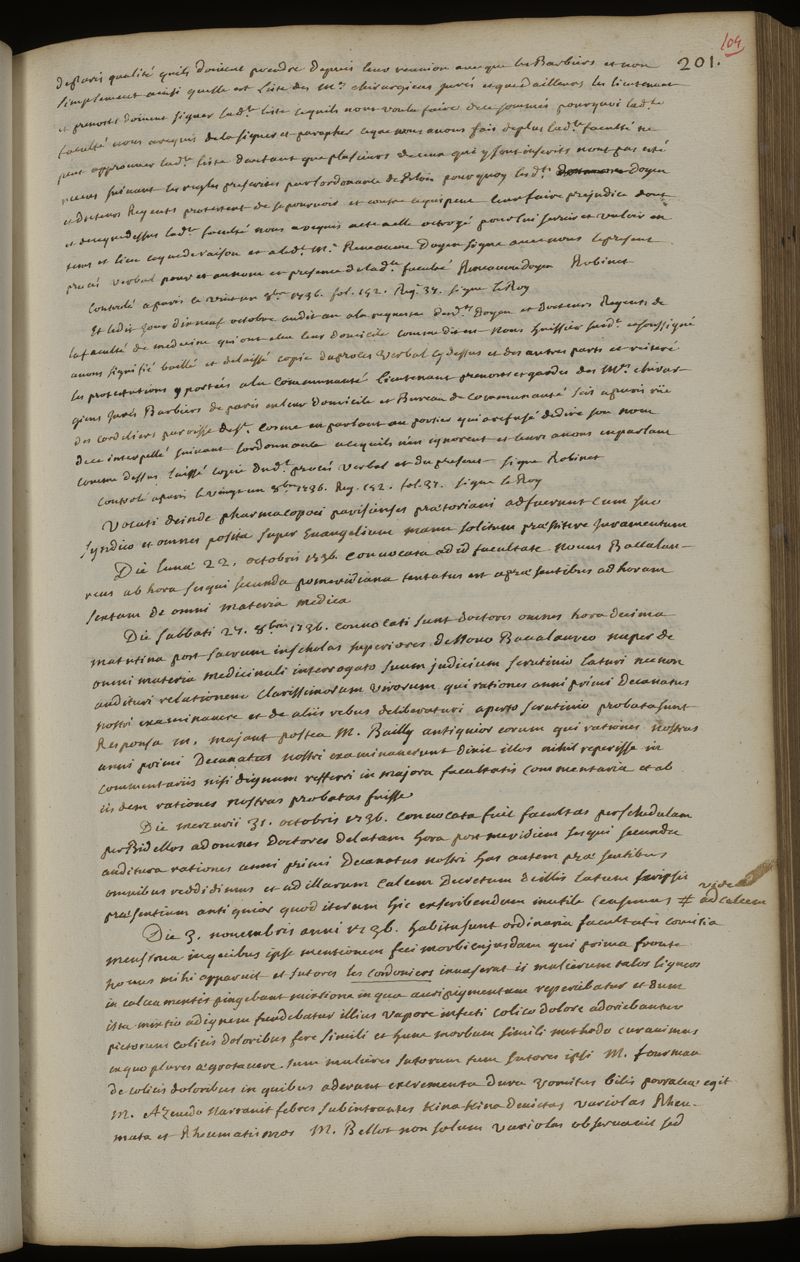 104
201.
de Paris qualité quils doivent prendre depuis leur reunion avecque les Barbiers et non
simplement ainsi quelle est Liste des Mes. chirurgiens jurés et que dailleurs les lieutenant
et prevosts doivent signer ladte. liste cequils nont voulu faire de ce sommés pourquoi ladte.
faculté nous a requis de la signer et parapher ce que nous avons fait deplus ladte. faculté ne
peut approuver ladte. liste dautant que plusieurs de ceux qui y sont inscrits nont pas esté
receus suivant les regles prescrites par lordonnance de Blois pourquoy lesdts. Doyen
et docteurs Regents protestent de se pourvoir et contre ce qui peut leur faire prejudice dont
et de ce que dessus ladte. faculté nous a requis acte a elle octroyé pour lui servir et valoir en
tems et lieu ce que de raison et a ledt. Me. Reneaume Doyen signé avec nous le present
procés verbal pour et au nom et presence de ladte. faculté Reneaume doyen Robinet
Controlé a paris le vint un 8bre 1736. fol. 192. Reg. 37. signé LeRoy
Et ledit jour dixneuf octobre audit an a la requeste desdts. Doyen et Docteurs Regents de
la faculté de medecine qui ont elu leur domicile comme dit est Nous huissier susdt. et soussigné
avons signifié baillé et delaissé copie du procés verbal cy dessus et des autres parts et reiteré
les protestations y portées a la Communauté lieutenant prevosts et gardes des Mes. chirur-
giens jurés Barbiers de paris en leur domicile et Bureau de Communauté scis a paris rüe
des cordeliers paroisse de St. Cosme en parlant au portier qui a refusé de dire son nom
de ce interpellé suivant lordonnance a ce quils nen ignorent et leurs avons en parlant
comme dessus laissé copie dudt. procés verbal et du present signé Robinet
Controlé a paris le vingt un 8bre 1736. Reg. 192. fol. 37. signé le Roy
Vocati deinde pharmacopoei parisienses praetoriani adfuerunt cum suo
syndico et omnes posita super Evangelium manu solitum praestitere juramentum
Die lunae 22. octobris 1736. convocata ad id facultate novus Baccalau-
reus ab hora sesqui secunda pomeridiana tentatus est a praesentibus ad horam
sextam de omni materia medica
Die sabbati 27. 8bris 1736. convocati sunt doctores omnes hora decima
matutina post sacrum in scholas superiores de Novo Baccalaureo nuper de
omni materia medicinali interrogato suum judicium scrutinio laturi necnon
audituri relationem clarissimorum virorum qui rationes anni primi Decanatus
nostri examinavere et de aliis rebus deliberaturi aperto scrutinio probata sunt
Responsa m. majault postea M. Bailly antiquior eorum qui rationes nostras
anni primi Decanatus nostri examinaverunt dixit illos nihil reperisse in
commentariis nisi dignum refferri in majora facultatis commentaria et ab
iisdem rationes nostras probatas fuisse
Die mercurii 31. octobris 1736. convocata fuit facultas per schedulam
per Bidellos ad omnes Doctores delatam hora post meridiem sesqui secunda
auditura rationes anni primi Decanatus nostri has autem praesentibus
omnibus reddidimus et ad illarum calcem Decretum de illis latum scripsit
praesentium antiquior quod iterum hic exscribendum inutile censemus # vide ad calcem
Die 3. novembris anni 1736. habita sunt ordinaria facultatis comitia
menstrua in quibus ipse mentionem feci morbi cujusdam qui prima fronte
novus mihi apparuit et sutores les cordoniers invaserat ii mulierum talos ligneos
in calceamentis pingebant mixtione in qua auripigmentum reperiebatur et dum
ista mixtio ad ignem fundebatur illius vapore infecti colico dolore adoriebantur
pictorum colicis doloribus fere simili et hunc morbum simili methodo curavimus
in quo plures aegrotavere tum mulieres sutorum tum sutores ipsi M. fourneau
de colicis doloribus in quibus aderant excrementa dura vomitus bilis porraceae egit
M. Azevedo narravit febres subintrantes Kina Kina devictas variolas Rheu-
mata et Rheumatismos M. Bellot non solum variolas observavit sed